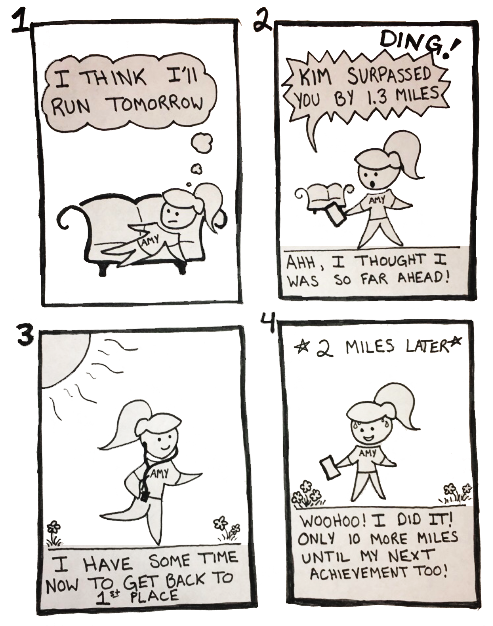 1
I THINK I'll
RUN TOMORROW
AMY
2
DING!
KIM SURPASSED
YOU BY 1.3 MILES
AMY
AHH, I THOUGHT I
WAS SO FAR AHEAD!
3
AMY
I HAVE SOME TIME
NOW TO GET BACK TO
1st PLACE
4
☆ 2 MILES LATER ☆
AMY
WOOHOO! I DID IT!
ONLY 10 MORE MILES
UNTIL MY NEXT
ACHIEVEMENT TOO!